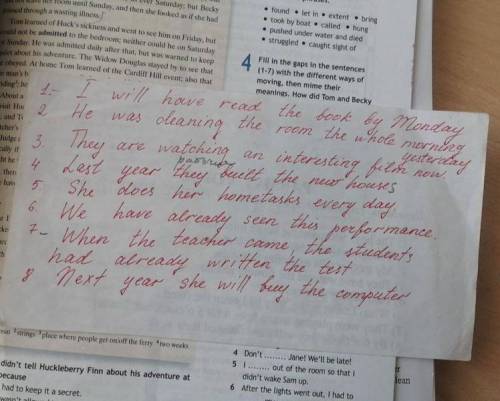 not leave her room until Sunday, and then she looked as if she had
passed through a wasting illness.
Tom learned of Huck's sickness and went to see him on Friday, but
could not be admitted to the bedroom; neither could he on Saturday
Sunday. He was admitted daily after that, but was warned to keep
about his adventure. The Widow Douglas stayed by to see that
obeyed. At home Tom learned of the Cardiff Hill event; also that
• found • let in • extent • bring
• took by boat • called • hung
• pushed under water and died
• struggled • caught sight of
4 Fill in the gaps in the sentences
(1-7) with the different ways of
moving, then mime their
meanings. How did Tom and Becky
1.- I will have read the book by Monday
2 He was cleaning the room the whole morning
yesterday
3. They are watching an interesting film now.
4 Last year they built the new houses
5. She does her hometasks every day.
6. We have already seen this performance.
7- When the teacher came, the students
had already written the test
8 Next year she will buy the computer
strings ³place where people get on/off the ferry ⁴two weeks
didn't tell Huckleberry Finn about his adventure at
because
had to keep it a secret.
4 Don't ........ Jane! We'll be late!
5 I ........ out of the room so that I
didn't wake Sam up.
6 After the lights went out, I had to